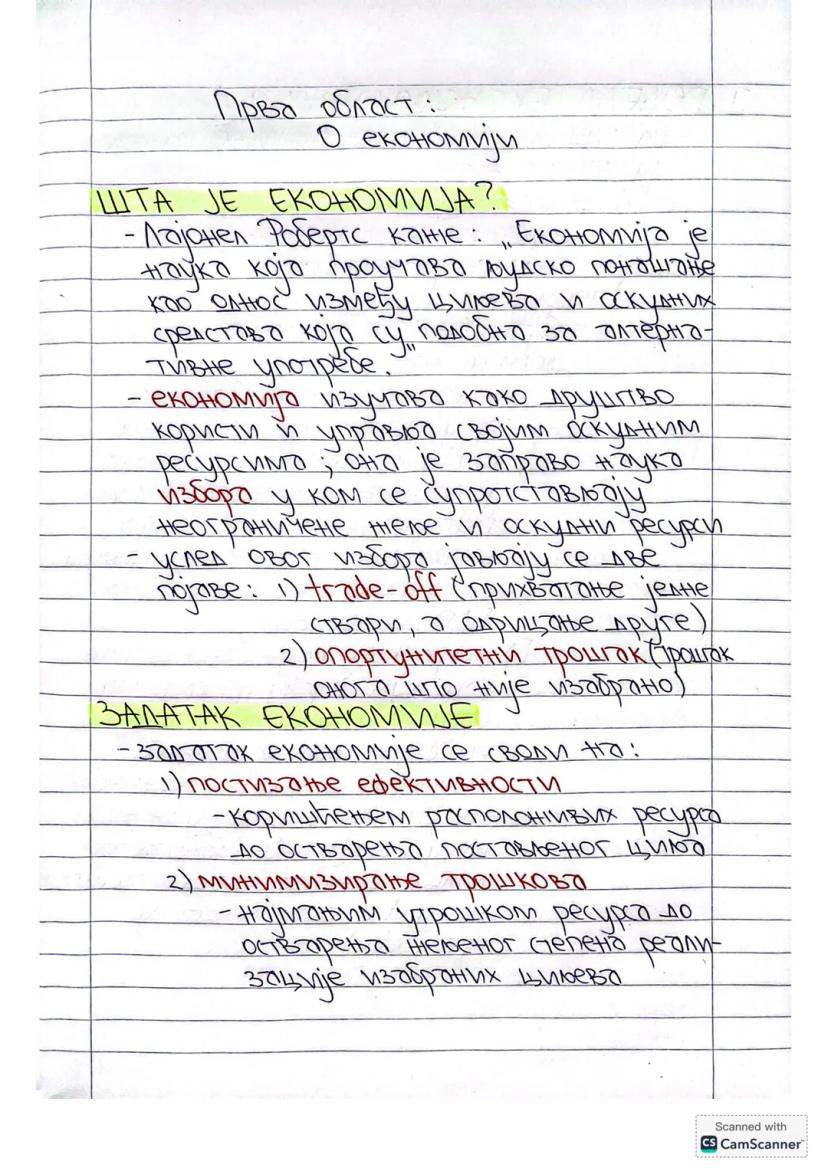 Прва област:
О економији
ШТА ЈЕ ЕКОНОМИЈА?
- Лајонел Робертс каже: „Економија је
наука која проучава људско понашање
као однос између циљева и оскудних
средстава која су„ подобна за алтерна-
тивне употребе.
- економија изучава како друштво
користи и управља својим оскудним
ресурсима; она је заправо наука
избора у ком се супротстављају
неограничене жеље и оскудни ресурси
- услед овог избора јављају се две
појаве: 1) trade-off (прихватање једне
ствари, а одрицање друге)
2) опортунитетни трошак (трошак
онога што није изабрано)
ЗАДАТАК ЕКОНОМИЈЕ
- задатак економије се своди на:
1) постизање ефективности
- коришћењем расположивих ресурса
до остварења постављеног циља
2) минимизирање трошкова
- најмањим утрошком ресурса до
остварења жељеног степена реали-
зације изабраних циљева
Scanned with
CS CamScanner